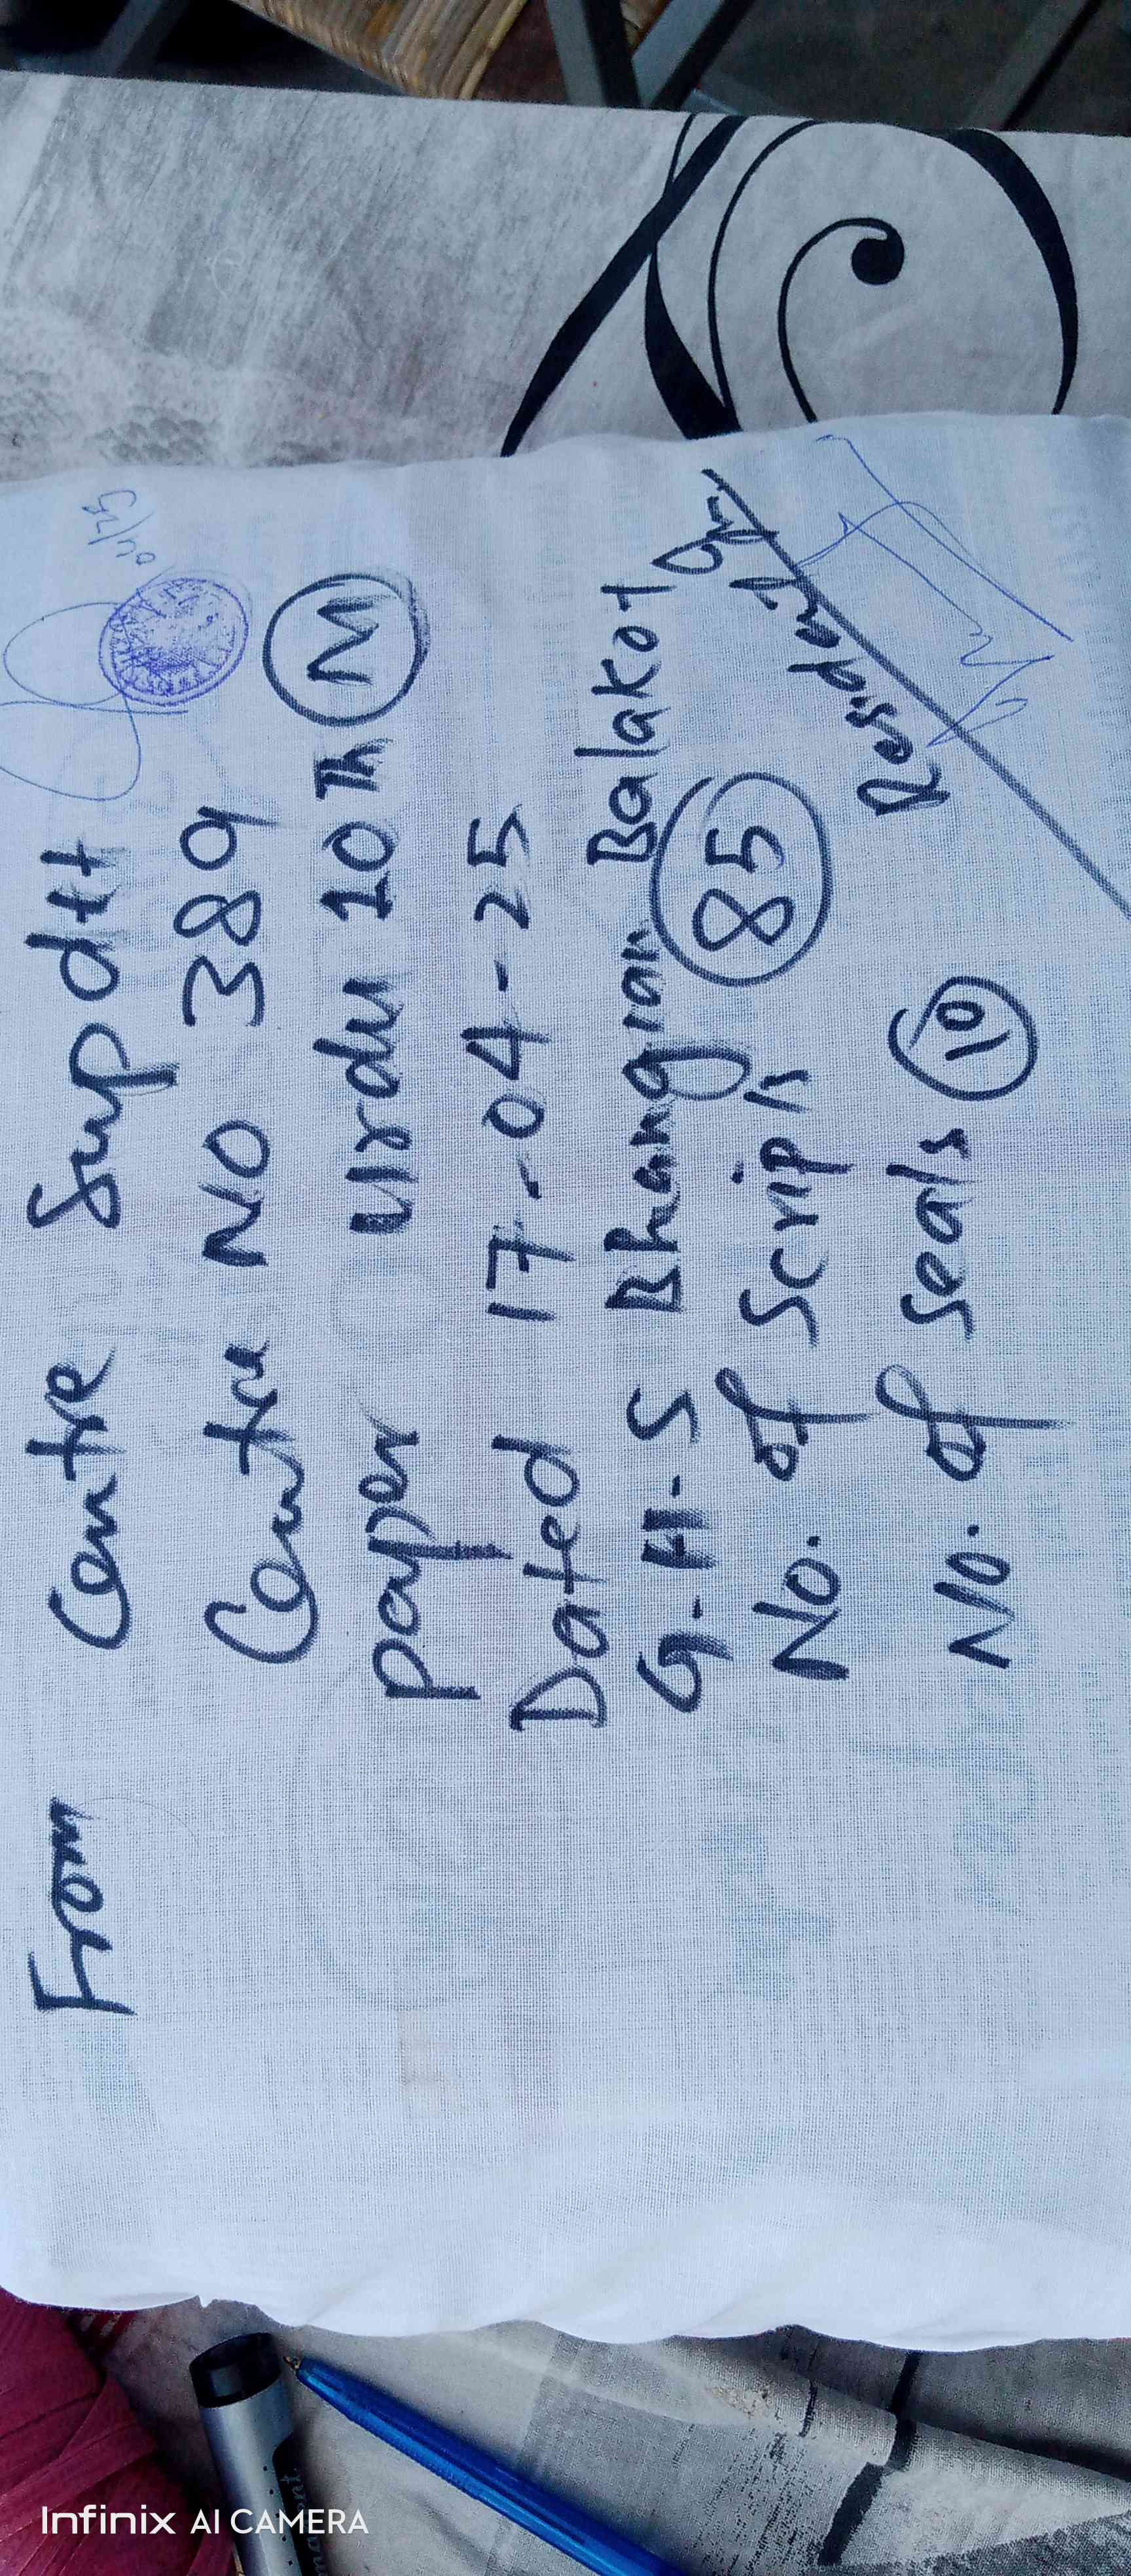 From Centre Supdtt
04/25
Centre NO 389
paper Urdu 10Th M
Dated 17-04-25
G-H-S Bhangian Balakot
No. of Scripts 85
No. of seals 10
Resident
Infinix AI CAMERA